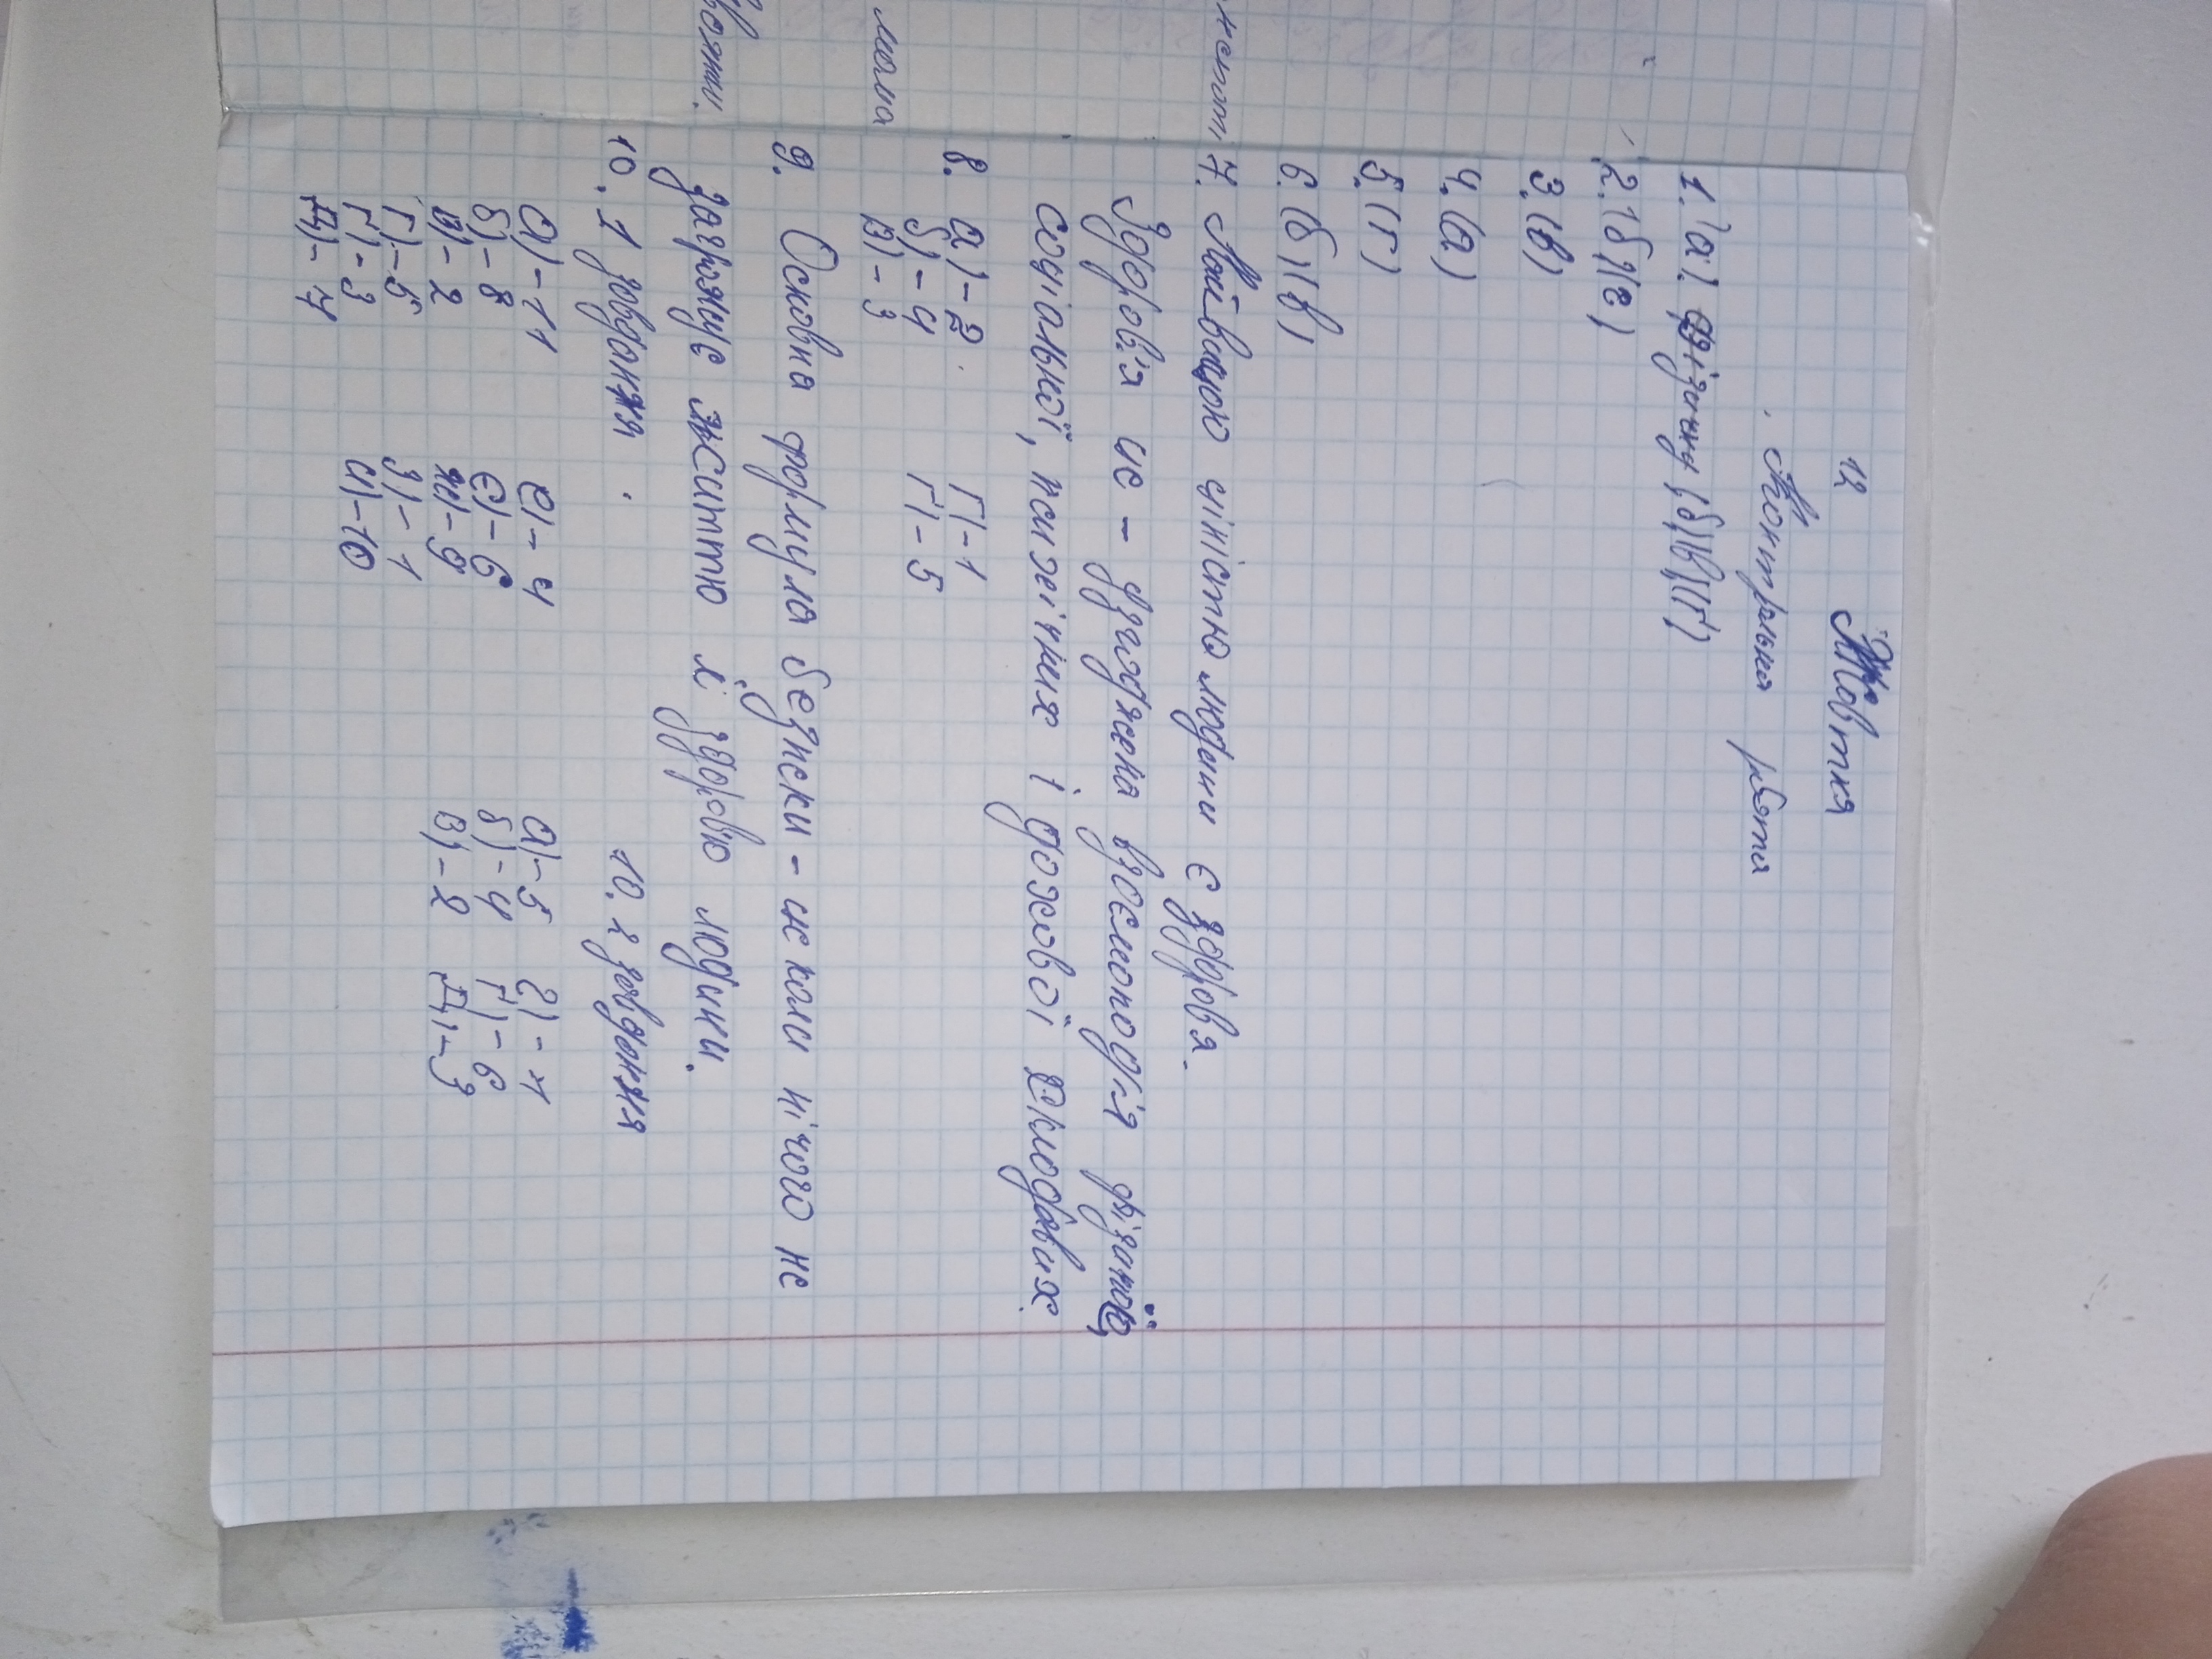 12 Жовтня
Контрольна робота
1. (а) фізичну (б)(в)(г)
2. (б)(е)
3. (в)
4. (а)
5. (г)
6. (б)(в)
7. Найвищою цінністю людини є здоров'я.
Здоров'я це - динамічна фізичної,
соціальної, психічних і духовної
8. а) - 2 г) - 1
б) - 4 ґ) - 5
в) - 3
9. Основна формула безпеки - це коли нічого не
загрожує життю й здоров'ю людини.
10. 1 завдання 10. 2 завдання
а) - 11 е) - 4 а) - 5 г) - 1
б) - 8 є) - 6 б) - 4 ґ) - 6
в) - 2 ж) - 9 в) - 2 д) - 3
г) - 5 з) - 1
ґ) - 3 и) - 10
д) - 7
мама